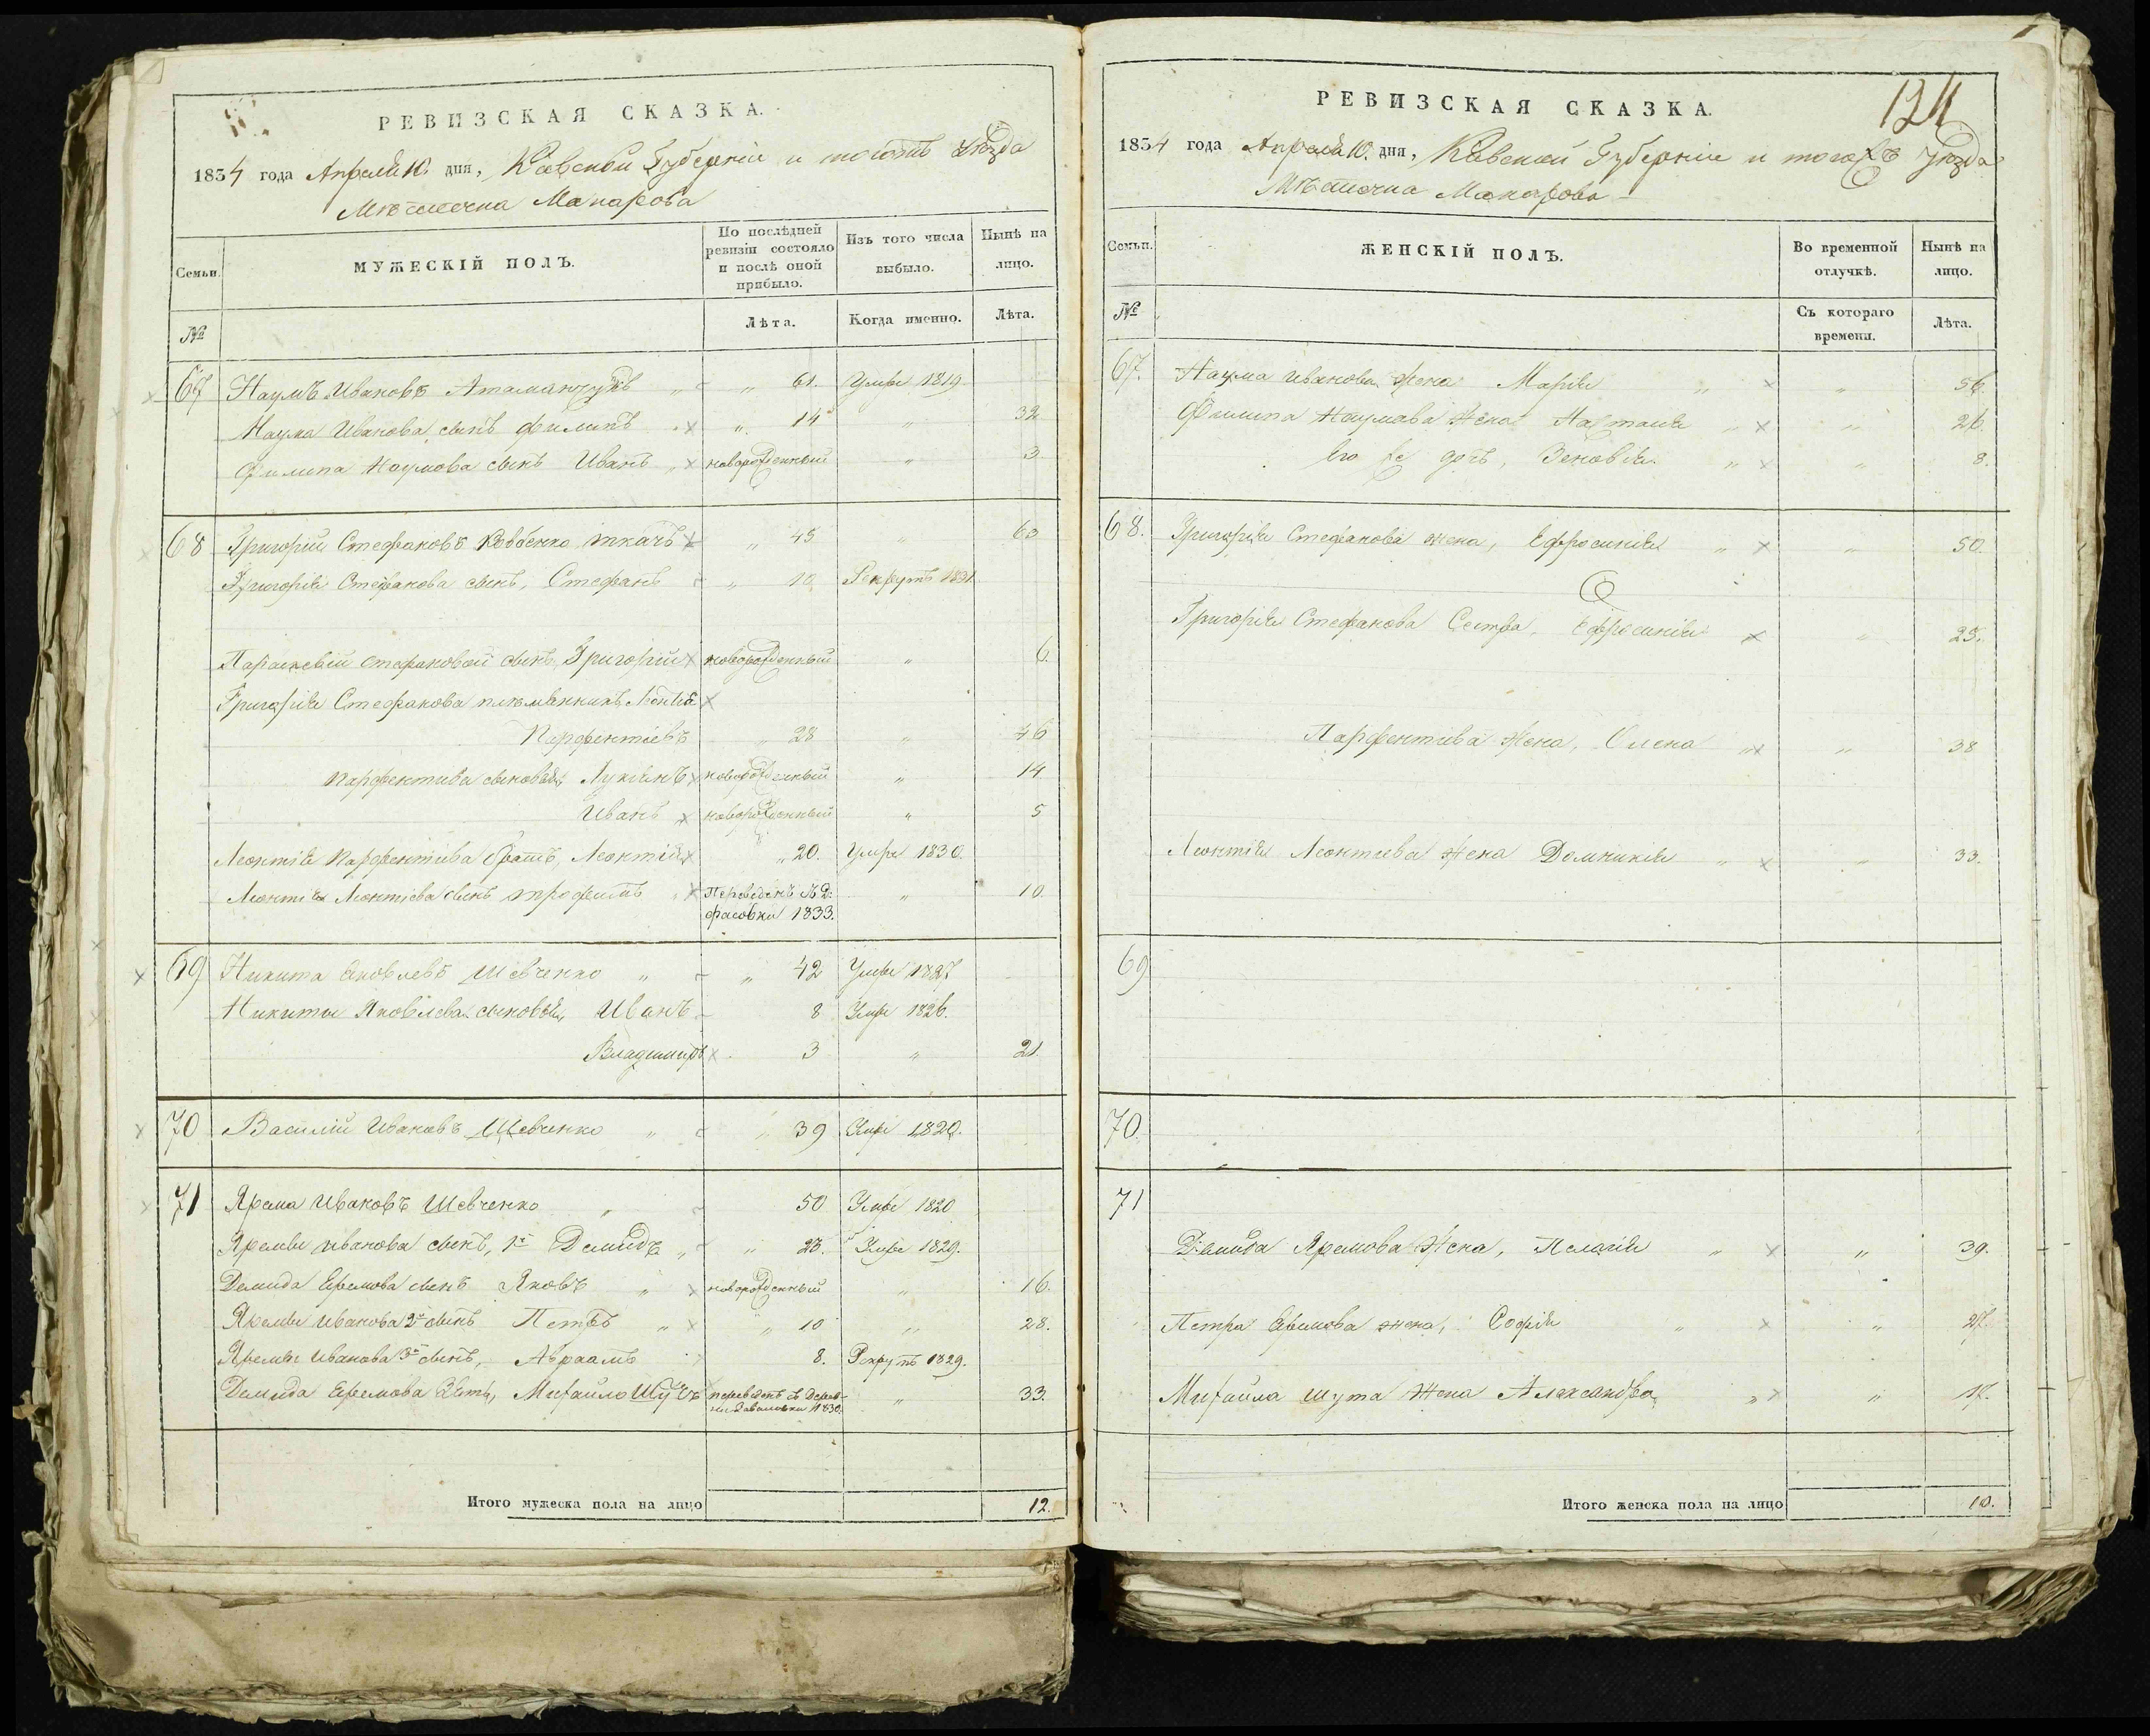 РЕВИЗСКАЯ СКАЗКА.
1834 года Апреля 10. дня, Кіевской Губерніи и тогожъ Уѣзда
Мѣстечка Макарова
Семьи.
МУЖЕСКІЙ ПОЛЪ.
По послѣдней ревизіи состояло и послѣ оной прибыло.
Изъ того числа выбыло.
Нынѣ на лицо.
№
Лѣта.
Когда именно.
Лѣта.
67 Наумъ Ивановъ Атаманчукъ " " 61. Умре 1819.
Наума Иванова сынъ Филипъ " 14 " 32
Филипа Наумова сынъ Иванъ " новорожденный " 3
68 Григорій Стефановъ Ткачъ " 45 " 63
Григорія Стефанова сынъ, Стефанъ " 10 Рекрутъ 1831.
Параскевіи Стефановой сынъ, Григорій новорожденный " 6.
Григорія Стефанова племянникъ
Парфентіевъ " 28 " 46
Парфентіева сыновья, Лукіянъ новорожденный " 14
Иванъ новорожденный " 5
Леонтія Парфентіева братъ, Леонтій " 20. Умре 1830.
Леонтія Леонтіева сынъ Трофимъ 1833. " 10.
69 Никита Яковлевъ Шевченко " " 42 Умре 1827
Никиты Яковлева сыновья, Иванъ 8 Умре 1826.
Владимиръ 3 " 21.
70 Василій Ивановъ Шевченко " " 39 Умре 1820.
71 Ярема Ивановъ Шевченко " 50 Умре 1820
Яремы Иванова сынъ, 1й Демидъ " " 23. Умре 1829.
Демида Еремова сынъ Яковъ " новорожденный " 16.
Яремы Иванова 2й сынъ Петръ " " 10 " 28.
Яремы Иванова 3й сынъ, Авраамъ 8. Рекрутъ 1829.
Демида Еремова Зять, Михайло Шутъ переведенъ съ Дерев- 1830. " 33.
Итого мужеска пола на лицо 12.
124
РЕВИЗСКАЯ СКАЗКА.
1834 года Апреля 10. дня, Кіевской Губерніи и тогожъ Уѣзда
Мѣстечка Макарова
Семьи.
ЖЕНСКІЙ ПОЛЪ.
Во временной отлучкѣ.
Нынѣ на лицо.
№
Съ котораго времени.
Лѣта.
67. Наума Иванова жена Марія " " 56.
Филипа Наумова жена " " 26.
Его же дочь, Зеновія. " " 8.
68. Григорія Стефанова жена, Ефросинія " " 50.
Григорія Стефанова Сестра, Ефросинія " 25.
Парфентіева жена, Олена " " 38
Леонтія Леонтіева жена Домникія " " 33.
69
70.
71
Демида Яремова жена, Пелагія " " 39.
Петра Еремова жена, Софія " " 27.
Михайла Шута жена Александра " " 17.
Итого женска пола на лицо 10.